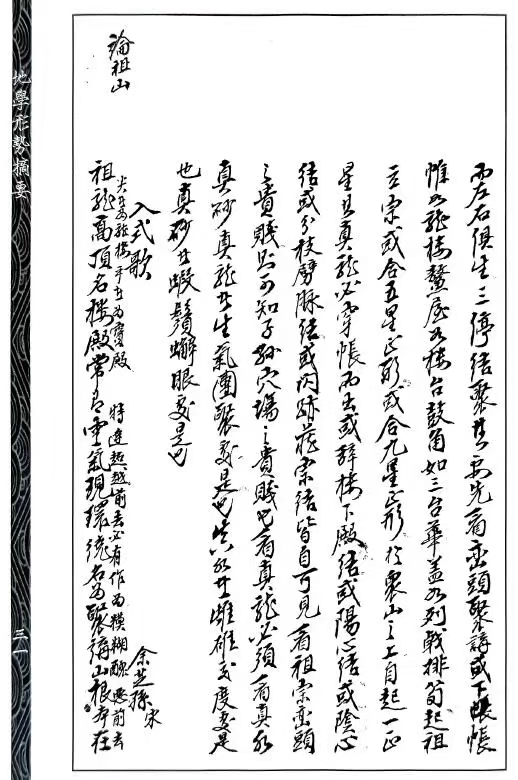 而左右俱生三停结聚其要先看峦頭聚講或下帳帳
惟如龍樓鰲屋如樓台鼓角如三台華盖如列戟排笋起祖
立宗或合五星正形或合九星正形於衆山之上自起一正
星其真龍必穿帳而出或辞樓下殿結或陽心結或陰心
結或分枝劈脉結或閃跡藏宗結皆自可見看祖宗峦頭
之貴賤則可知子孫穴塲之貴賤也看真龍必須看真水
真砂真龍者生氣團聚處是也真水者雌雄交度處是
也真砂者蝦鬚蠏眼處是也
入式歌 宋 余芝孫
尖者為龍樓平者為寳殿 特達超越前去必有作為模糊醜惡前去
祖龍高頂名樓殿常有雲氣現環繞名為聚講山根本在
論祖山
地學形勢摘要
三一